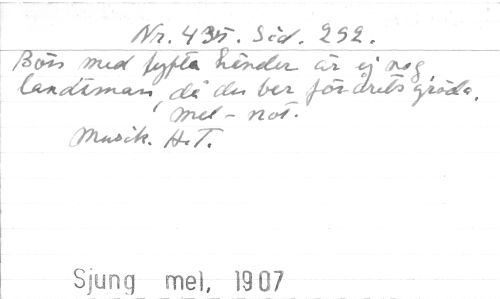 Nr. 435. Sid. 292.
Bön med lyfta händer är ej nog
landtman, då du ber för årets gröda.
mel-not.
Musik. H.T.
Sjung mel, 1907